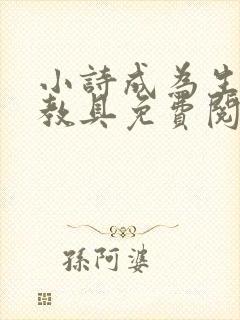 小詩成為生
教具免費閱
孫阿婆